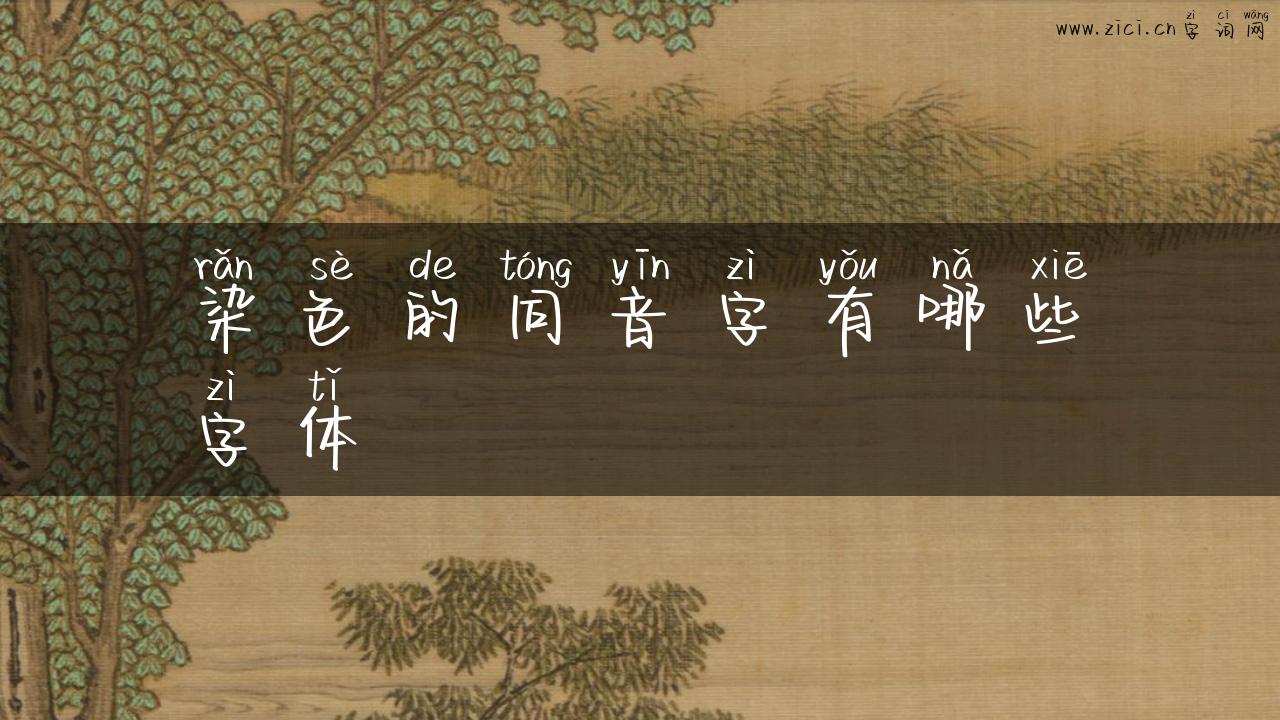 zì cí wǎng
www.zici.cn字词网
rǎn sè de tóng yīn zì yǒu nǎ xiē
染色的同音字有哪些
zì tǐ
字体